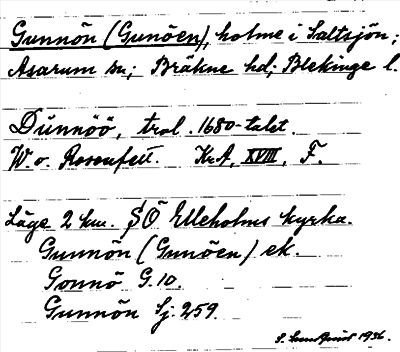 Gunnön (Gunöen), holme i Saltsjön;
Asarum sn; Bräkne hd; Blekinge l.
Dünnöö, trol. 1680-talet.
W. v. Rosenfelt. Kr.A, XVIII, F.
Läge 2 km. SÖ Elleholms kyrka.
Gunnön (Gunöen) ek.
Gonnö G.10.
Gunnön Sj. 259.
S. 1936.